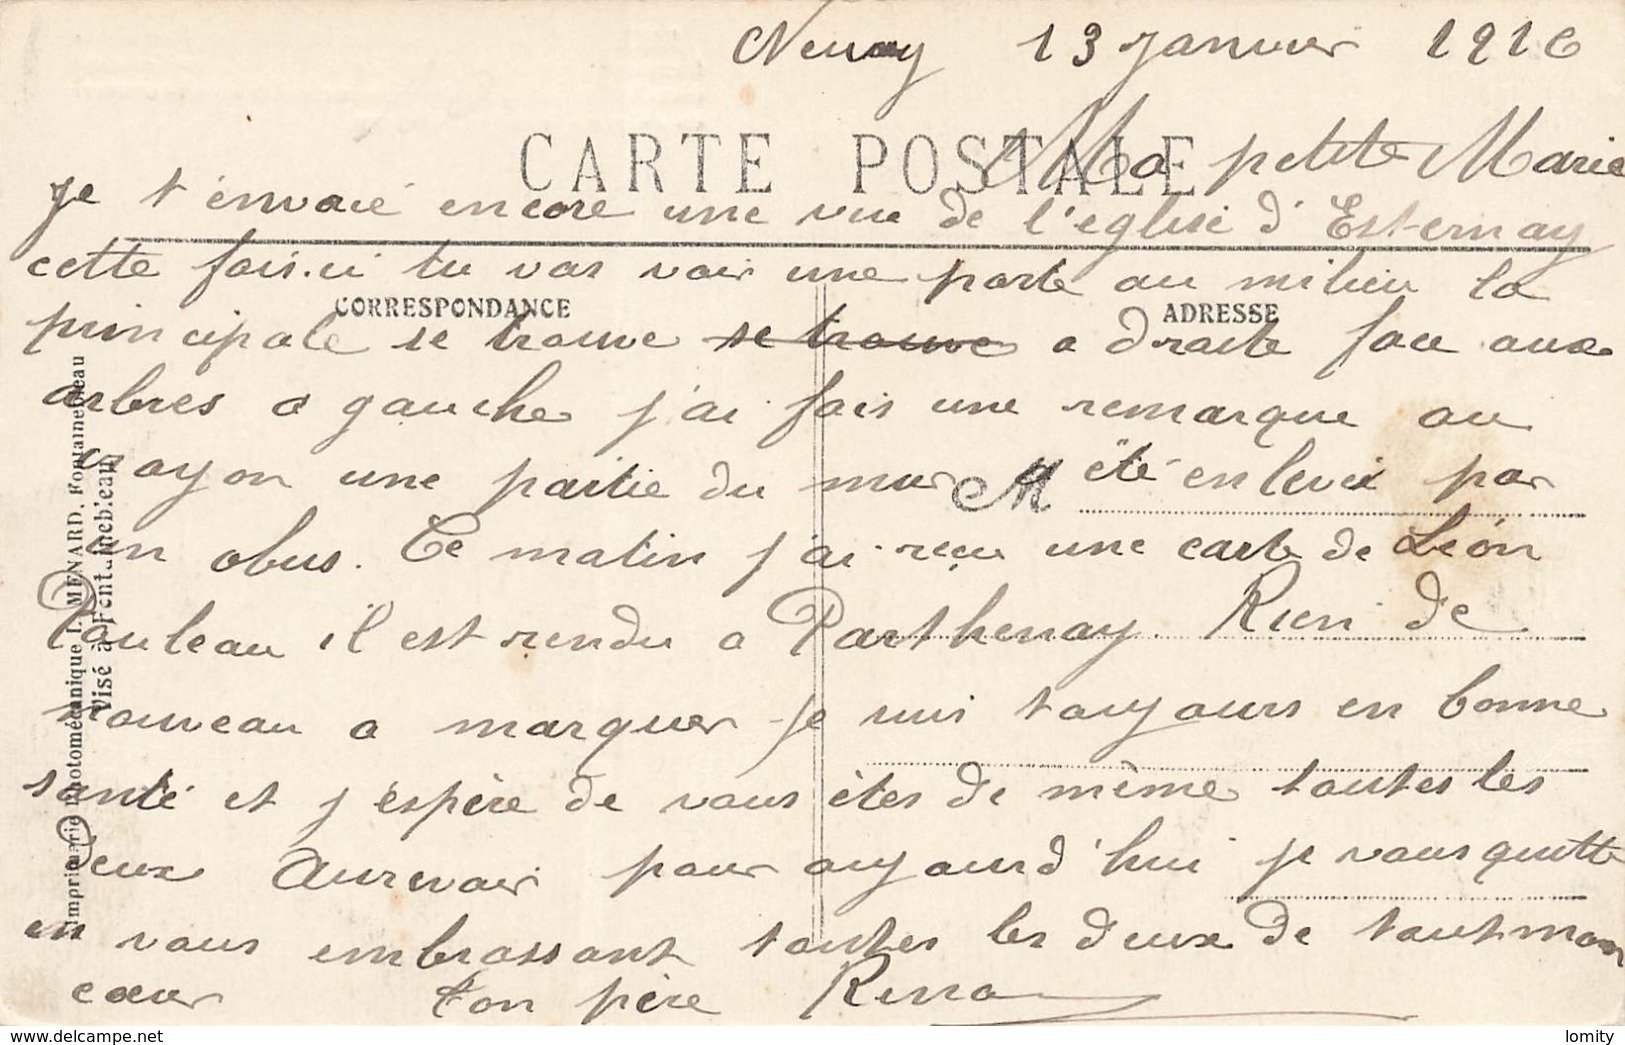 13 Janvier 1916
CARTE POSTALE
Ma petite Marie
je t'envoie encore une vue de l'eglise d'Esternay
cette fois.ci tu vas voir une porte au milieu la
CORRESPONDANCE
ADRESSE
principale se trouve se trouve a droite face aux
arbres a gauche j'ai fais une remarque au
crayon une partie du mur a été enlevé par
M
un obus. Ce matin j'ai reçu une carte de Léon
Pouleau il est rendu a Parthenay. Rien de
nouveau a marquer je suis toujours en bonne
santé et j'espère de vous êtes de même toutes les
deux Aurevoir pour aujourd'hui je vous quitte
en vous embrassant toutes les deux de tout mon
cœur ton père
Imprimerie Photomécanique L. MENARD, Fontainebleau
Visé à Fontainebleau
lomity